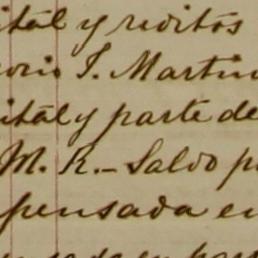 ital y reditos
orio I. Martin
ital y parte de
M. R.- Saldo p
pensada en